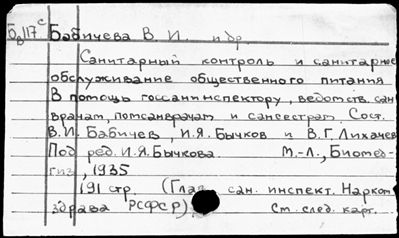 Б8117с Бабичева В. И. и др.
Санитарный контроль и санитарное
обслуживание общественного питания
В помощь госсанинспектору, ведомств. сан
врачам, помсанврачам и сансестрам. Сост.
В.И. Бабичев, И.Я. Бычков и В.Г. Лихачев
Под ред. И.Я. Бычкова. М.-Л., Биомед-
гиз, 1935
191 стр. (Глав. сан. инспект. Нарком-
здрава РСФСР)
См. след. карт.